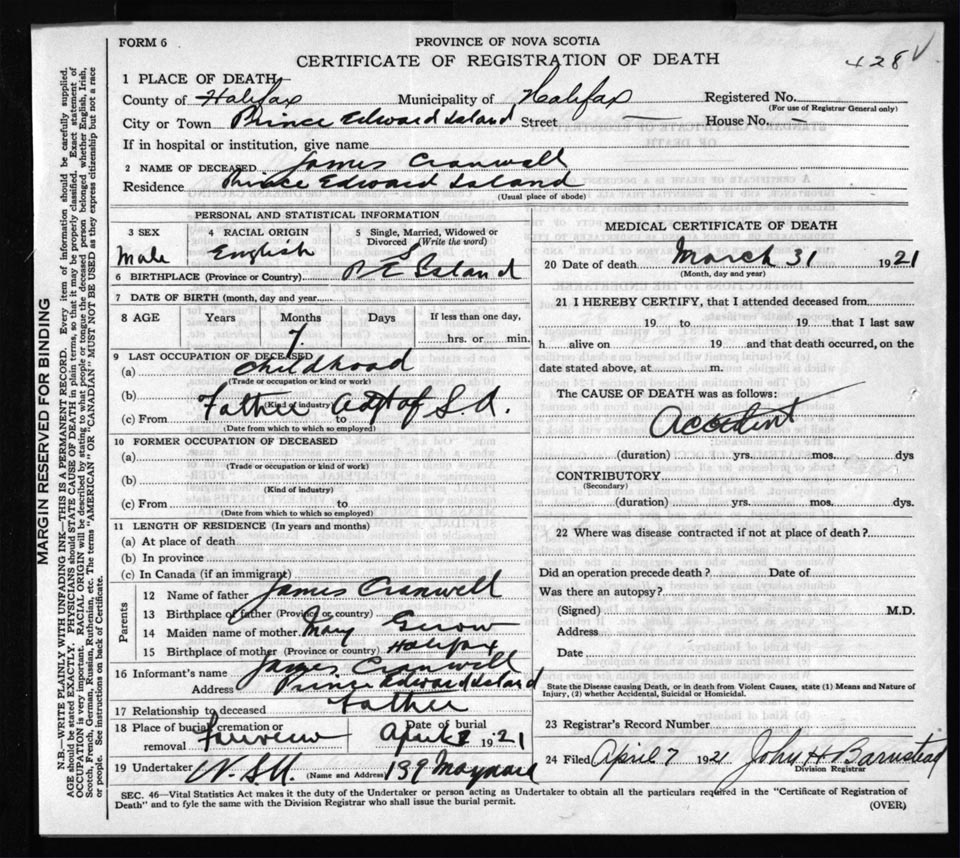 FORM 6
PROVINCE OF NOVA SCOTIA
CERTIFICATE OF REGISTRATION OF DEATH
428
MARGIN RESERVED FOR BINDING
N.B.—WRITE PLAINLY WITH UNFADING INK—THIS IS A PERMANENT RECORD. Every item of information should be carefully supplied.
AGE should be stated EXACTLY. PHYSICIANS should STATE CAUSE OF DEATH in plain terms, so that it may be properly classified. Exact statement of
OCCUPATION is very important. RACIAL ORIGIN will be described by stating to what people or tongue the deceased person belonged whether English, Irish,
Scotch, French, German, Russian, Ruthenian, etc. The terms "AMERICAN" OR "CANADIAN" MUST NOT BE USED as they express citizenship but not a race
or people. See instructions on back of Certificate.
1 PLACE OF DEATH
County of Halifax Municipality of Halifax Registered No.
(For use of Registrar General only)
City or Town Prince Edward Island Street — House No. —
If in hospital or institution, give name
2 NAME OF DECEASED James Cranwell
Residence Prince Edward Island
(Usual place of abode)
PERSONAL AND STATISTICAL INFORMATION
3 SEX 4 RACIAL ORIGIN 5 Single, Married, Widowed or
Divorced (Write the word)
Male English S
6 BIRTHPLACE (Province or Country) P E Island
7 DATE OF BIRTH (month, day and year)
8 AGE Years Months Days If less than one day,
7 hrs. or min.
9 LAST OCCUPATION OF DECEASED
(a) Childhood
(Trade or occupation or kind of work)
(b) Father Adjt of S.A.
(Kind of industry)
(c) From to
(Date from which to which so employed)
10 FORMER OCCUPATION OF DECEASED
(a)
(Trade or occupation or kind of work)
(b)
(Kind of industry)
(c) From to
(Date from which to which so employed)
11 LENGTH OF RESIDENCE (In years and months)
(a) At place of death
(b) In province
(c) In Canada (if an immigrant)
Parents
12 Name of father James Cranwell
13 Birthplace of father (Province or country)
14 Maiden name of mother Mary Gerow
15 Birthplace of mother (Province or country) Halifax
16 Informant's name James Cranwell
Address Prince Edward Island
17 Relationship to deceased Father
18 Place of burial, cremation or removal Fairview Date of burial April 2 1921
19 Undertaker N.S.U. (Name and Address) 139 Maynard
MEDICAL CERTIFICATE OF DEATH
20 Date of death March 31 1921
(Month, day and year)
21 I HEREBY CERTIFY, that I attended deceased from
19 to 19 that I last saw
h alive on 19 and that death occurred, on the
date stated above, at m.
The CAUSE OF DEATH was as follows:
Accident
(duration) yrs. mos. dys
CONTRIBUTORY
(Secondary)
(duration) yrs. mos. dys.
22 Where was disease contracted if not at place of death?
Did an operation precede death? Date of
Was there an autopsy?
(Signed) M.D.
Address
Date
State the Disease causing Death, or in death from Violent Causes, state (1) Means and Nature of
Injury, (2) whether Accidental, Suicidal or Homicidal.
23 Registrar's Record Number
24 Filed April 7 1921 John H Barnstead
Division Registrar
SEC. 46—Vital Statistics Act makes it the duty of the Undertaker or person acting as Undertaker to obtain all the particulars required in the "Certificate of Registration of
Death" and to fyle the same with the Division Registrar who shall issue the burial permit.
(OVER)